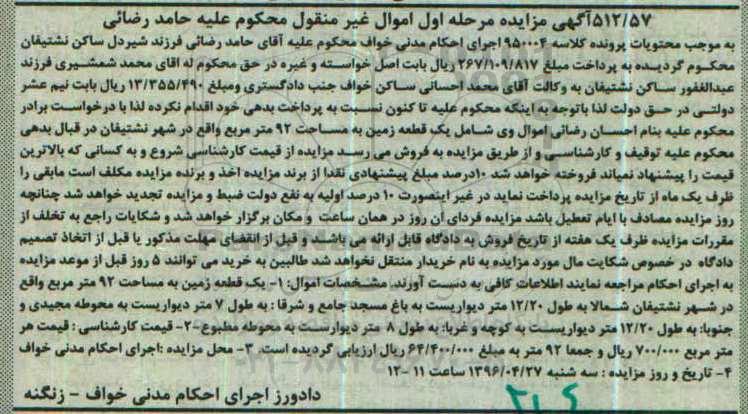 ۵۱۲/۵۷آگهی مزایده مرحله اول اموال غیر منقول محکوم علیه حامد رضائی
به موجب محتویات پرونده کلاسه ۹۵۰۰۰۴ اجرای احکام مدنی خواف محکوم علیه آقای حامد رضائی فرزند شیردل ساکن نشتیفان
محکوم گردیده به پرداخت مبلغ ۲۶۷/۱۰۹/۸۱۷ ریال بابت اصل خواسته و غیره در حق محکوم له اقای محمد شمشیری فرزند
عبدالغفور ساکن نشتیفان به وکالت آقای محمد احسانی ساکن خواف جنب دادگستری ومبلغ ۱۳/۳۵۵/۴۹۰ ریال بابت نیم عشر
دولتی در حق دولت لذا باتوجه به اینکه محکوم علیه تا کنون نسبت به پرداخت بدهی خود اقدام نکرده لذا با درخواست برادر
محکوم علیه بنام احسان رضائی اموال وی شامل یک قطعه زمین به مساحت ۹۲ متر مربع واقع در شهر نشتیفان در قبال بدهی
محکوم علیه توقیف و کارشناسی و از طریق مزایده به فروش می رسد مزایده از قیمت کارشناسی شروع و به کسانی که بالاترین
قیمت را پیشنهاد نمیاند فروخته خواهد شد ۱۰درصد مبلغ پیشنهادی نقدا از برند مزایده اخذ و برنده مزایده مکلف است مابقی را
ظرف یک ماه از تاریخ مزایده پرداخت نماید در غیر اینصورت ۱۰ درصد اولیه به نفع دولت ضبط و مزایده تجدید خواهد شد چنانچه
روز مزایده مصادف با ایام تعطیل باشد مزایده فردای آن روز در همان ساعت و مکان برگزار خواهد شد و شکایات راجع به تخلف از
مقررات مزایده ظرف یک هفته از تاریخ فروش به دادگاه قابل ارائه می باشد و قبل از انقضای مهلت مذکور یا قبل از اتخاذ تصمیم
دادگاه در خصوص شکایت مال مورد مزایده به نام خریدار منتقل نخواهد شد طالبین به خرید می توانند ۵ روز قبل از موعد مزایده
به اجرای احکام مراجعه نمایند اطلاعات کافی به دست آورند. مشخصات اموال: ۱- یک قطعه زمین به مساحت ۹۲ متر مربع واقع
در شهر نشتیفان شمالا به طول ۱۲/۲۰ متر دیواریست به باغ مسجد جامع و شرقا : به طول ۷ متر دیواریست به محوطه مجیدی و
جنوبا: به طول ۱۲/۲۰ متر دیواریست به کوچه و غربا: به طول ۸ متر دیواریست به محوطه مطبوع-۲- قیمت کارشناسی : قیمت هر
متر مربع ۷۰۰/۰۰۰ ریال و جمعا ۹۲ متر به مبلغ ۶۴/۴۰۰/۰۰۰ ریال ارزیابی گردیده است. ۳- محل مزایده :اجرای احکام مدنی خواف
۴- تاریخ و روز مزایده : سه شنبه ۱۳۹۶/۰۴/۲۷ ساعت ۱۱ -۱۲
دادورز اجرای احکام مدنی خواف - زنگنه